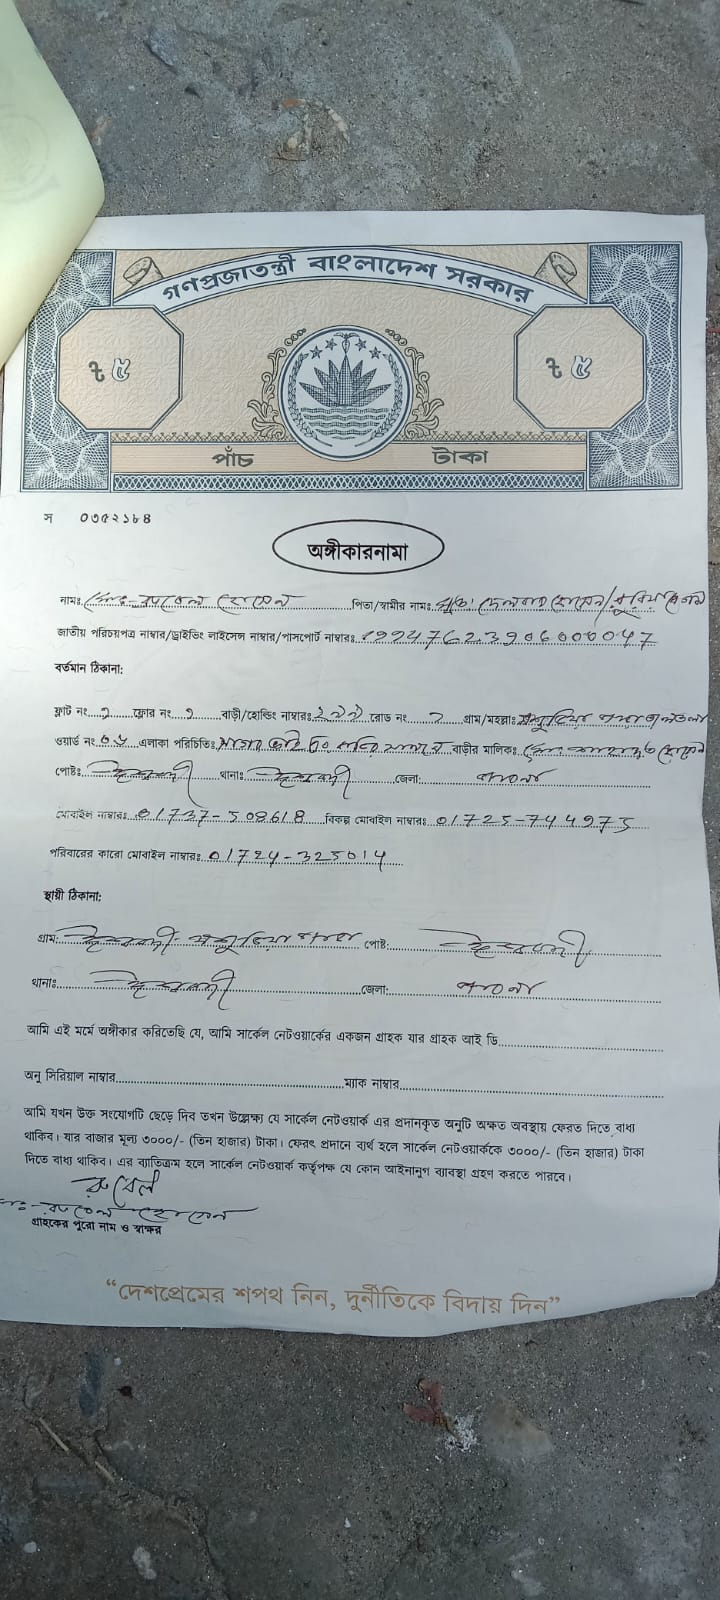 গণপ্রজাতন্ত্রী বাংলাদেশ সরকার
৳ ৫ ৳ ৫
পাঁচ টাকা
স ০৩৫২১৮৪
অঙ্গীকারনামা
নামঃ মোঃ রুবেল হোসেন পিতা/স্বামীর নামঃ মৃতঃ দেলবার হোসেন/
জাতীয় পরিচয়পত্র নাম্বার/ড্রাইভিং লাইসেন্স নাম্বার/পাসপোর্ট নাম্বারঃ 19947623906000047
বর্তমান ঠিকানা:
ফ্লাট নং ফ্লোর নং বাড়ী/হোল্ডিং নাম্বারঃ রোড নং গ্রাম/মহল্লাঃ মশুড়িয়া পাড়া
ওয়ার্ড নং এলাকা পরিচিতিঃ বাড়ীর মালিকঃ মোঃ হোসেন
পোষ্টঃ ঈশ্বরদী থানাঃ ঈশ্বরদী জেলা: পাবনা
মোবাইল নাম্বারঃ 01737-508618 বিকল্প মোবাইল নাম্বারঃ 01725-744975
পরিবারের কারো মোবাইল নাম্বারঃ 01724-325014
স্থায়ী ঠিকানা:
গ্রাম: ঈশ্বরদী মশুড়িয়া পাড়া পোষ্ট: ঈশ্বরদী
থানাঃ ঈশ্বরদী জেলা: পাবনা
আমি এই মর্মে অঙ্গীকার করিতেছি যে, আমি সার্কেল নেটওয়ার্কের একজন গ্রাহক যার গ্রাহক আই ডি
অনু সিরিয়াল নাম্বার ম্যাক নাম্বার
আমি যখন উক্ত সংযোগটি ছেড়ে দিব তখন উল্লেক্ষ্য যে সার্কেল নেটওয়ার্ক এর প্রদানকৃত অনুটি অক্ষত অবস্থায় ফেরত দিতে বাধ্য
থাকিব। যার বাজার মূল্য ৩০০০/- (তিন হাজার) টাকা। ফেরৎ প্রদানে ব্যর্থ হলে সার্কেল নেটওয়ার্ককে ৩০০০/- (তিন হাজার) টাকা
দিতে বাধ্য থাকিব। এর ব্যতিক্রম হলে সার্কেল নেটওয়ার্ক কর্তৃপক্ষ যে কোন আইনানুগ ব্যাবস্থা গ্রহণ করতে পারবে।
রুবেল
মোঃ রুবেল হোসেন
গ্রাহকের পুরো নাম ও স্বাক্ষর
“দেশপ্রেমের শপথ নিন, দুর্নীতিকে বিদায় দিন”